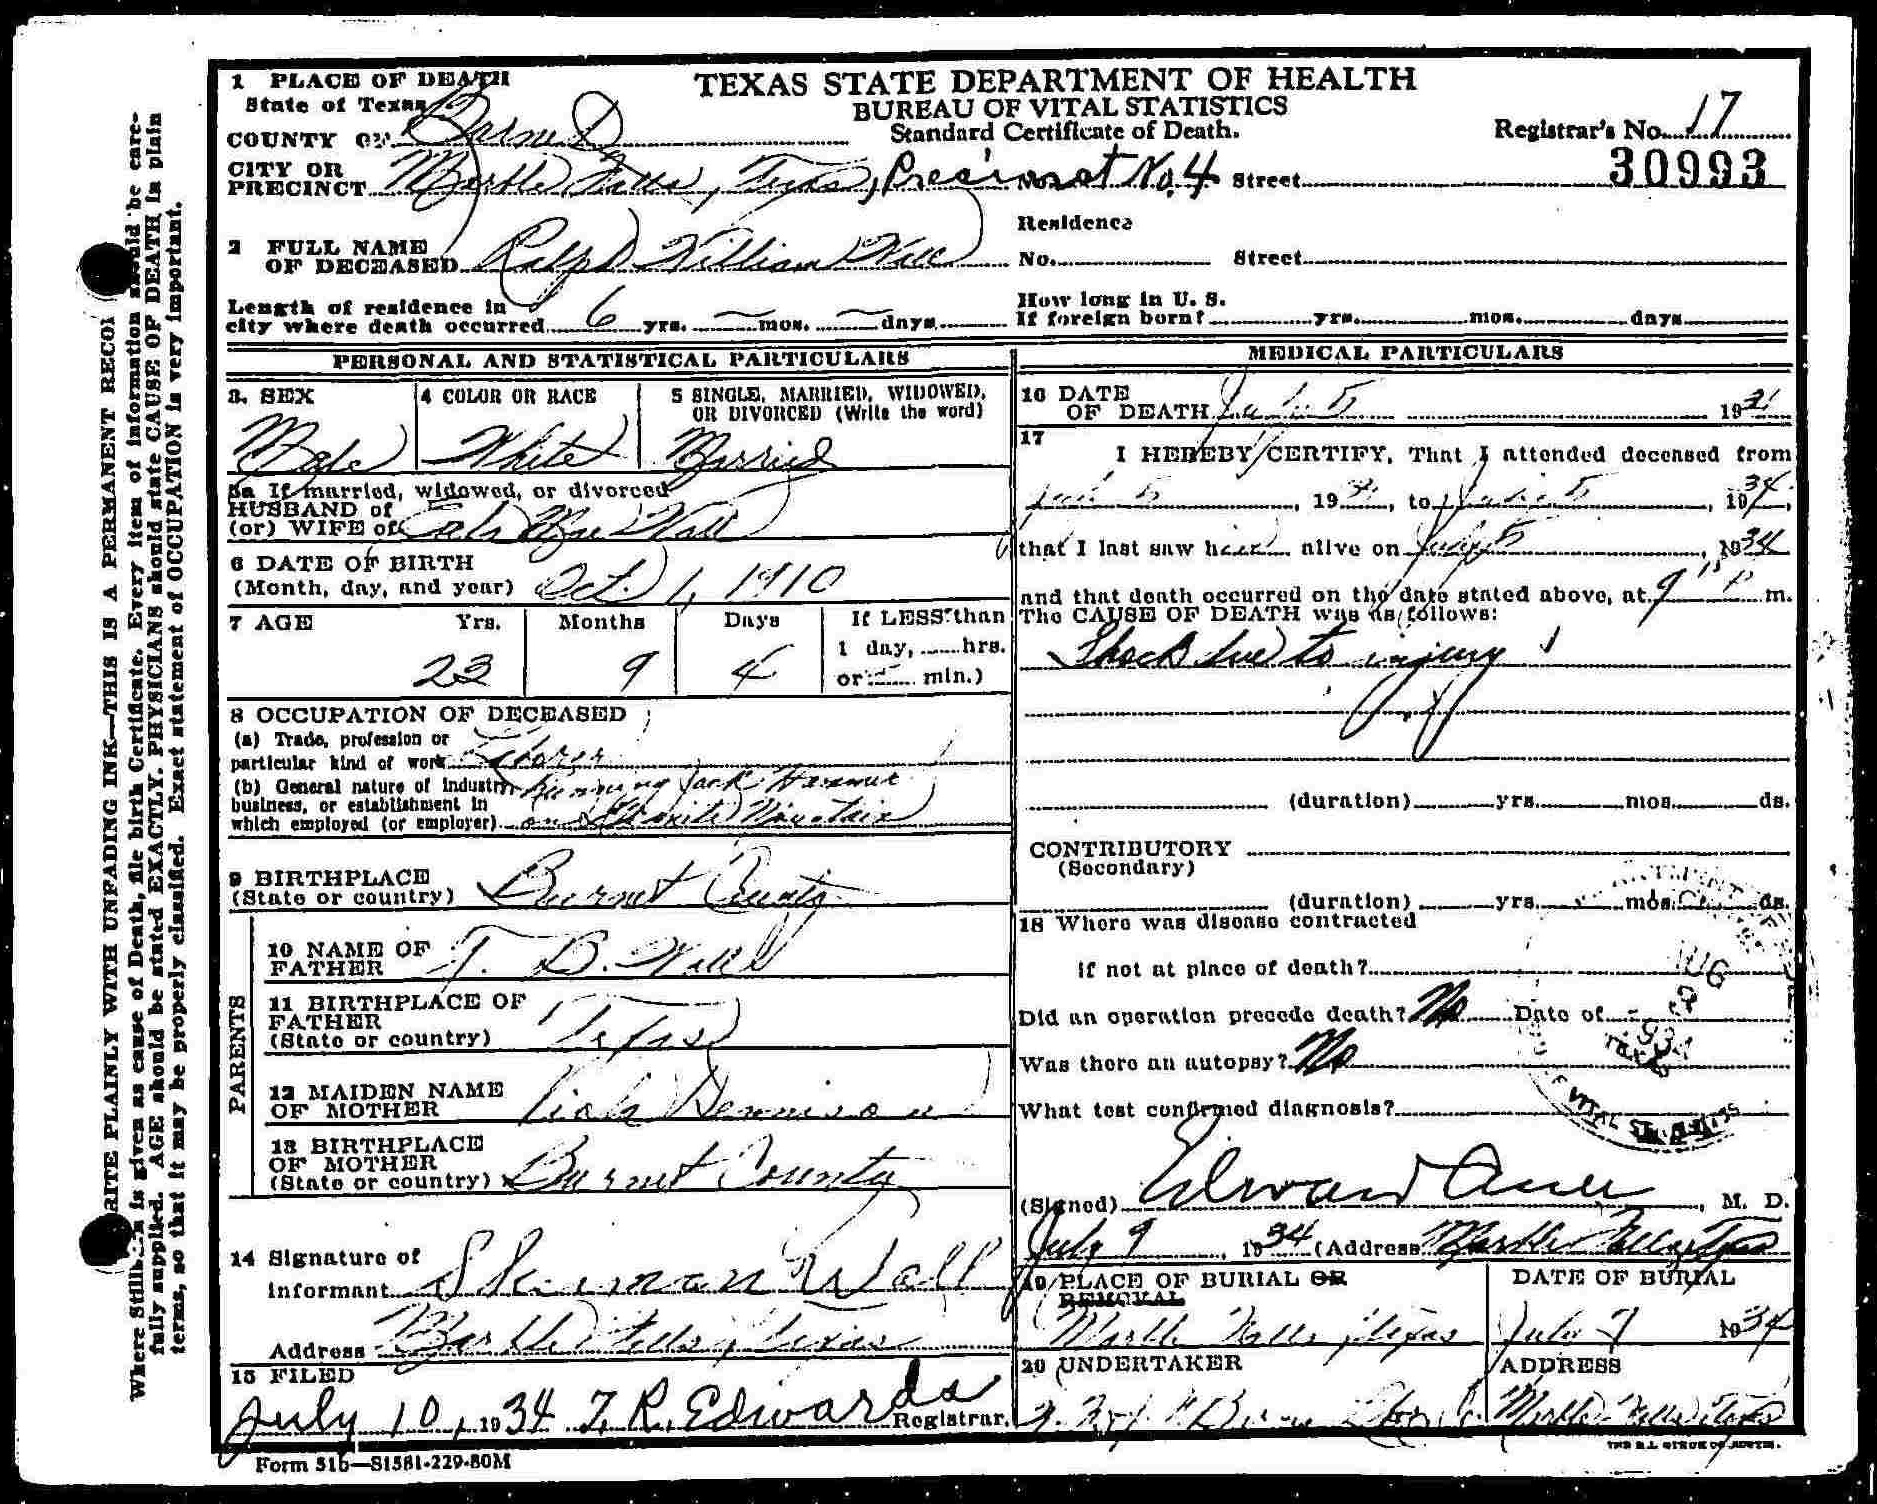 TEXAS STATE DEPARTMENT OF HEALTH
BUREAU OF VITAL STATISTICS
Standard Certificate of Death.
Registrar's No. 17
30993
1 PLACE OF DEATH
State of Texas
COUNTY OF Burnet
CITY OR
PRECINCT Marble Falls, Texas, Precinct No. 4 Street
2 FULL NAME
OF DECEASED Ralph William Wall
Residence
No. Street
Length of residence in
city where death occurred 6 yrs. — mos. — days
How long in U. S.
If foreign born? yrs. mos. days
PERSONAL AND STATISTICAL PARTICULARS
3. SEX
Male
4 COLOR OR RACE
White
5 SINGLE, MARRIED, WIDOWED,
OR DIVORCED (Write the word)
Married
5a If married, widowed, or divorced
HUSBAND of
(or) WIFE of Mae Wall
6 DATE OF BIRTH
(Month, day, and year) Oct. 1, 1910
7 AGE Yrs. Months Days
23 9 4
If LESS than
1 day, hrs.
or min.)
8 OCCUPATION OF DECEASED
(a) Trade, profession or
particular kind of work Laborer
(b) General nature of industry, Running Jack Hammer
business, or establishment in
which employed (or employer) on Granite Mountain
9 BIRTHPLACE
(State or country) Burnet County
PARENTS
10 NAME OF
FATHER T. B. Wall
11 BIRTHPLACE OF
FATHER
(State or country) Texas
12 MAIDEN NAME
OF MOTHER Viola Dennison
13 BIRTHPLACE
OF MOTHER
(State or country) Burnet County
14 Signature of
Informant Sherman Wall
Address Marble Falls, Texas
15 FILED
July 10, 1934 F. R. Edwards Registrar.
MEDICAL PARTICULARS
16 DATE
OF DEATH July 5 1934
17
I HEREBY CERTIFY, That I attended deceased from
July 5, 1934, to July 5, 1934,
that I last saw him alive on July 5, 1934
and that death occurred on the date stated above, at 9 P m.
The CAUSE OF DEATH was as follows:
Shock due to injury
(duration) yrs. mos. ds.
CONTRIBUTORY
(Secondary)
(duration) yrs. mos. ds.
18 Where was disease contracted
if not at place of death?
Did an operation precede death? No Date of
Was there an autopsy? No
What test confirmed diagnosis?
(Signed) Edward , M. D.
July 9, 1934 (Address Marble Falls, Texas
19 PLACE OF BURIAL OR
REMOVAL
Marble Falls, Texas
DATE OF BURIAL
July 7 1934
20 UNDERTAKER
ADDRESS
Marble Falls, Texas
AUG
TEXAS
VITAL STATISTICS
Form 51b—S1581-229-80M
RITE PLAINLY WITH UNFADING INK—THIS IS A PERMANENT RECOI
Where Stillborn is given as cause of Death, file birth Certificate. Every item of information should be care-
fully supplied. AGE should be stated EXACTLY. PHYSICIANS should state CAUSE OF DEATH in plain
terms, so that it may be properly classified. Exact statement of OCCUPATION is very important.